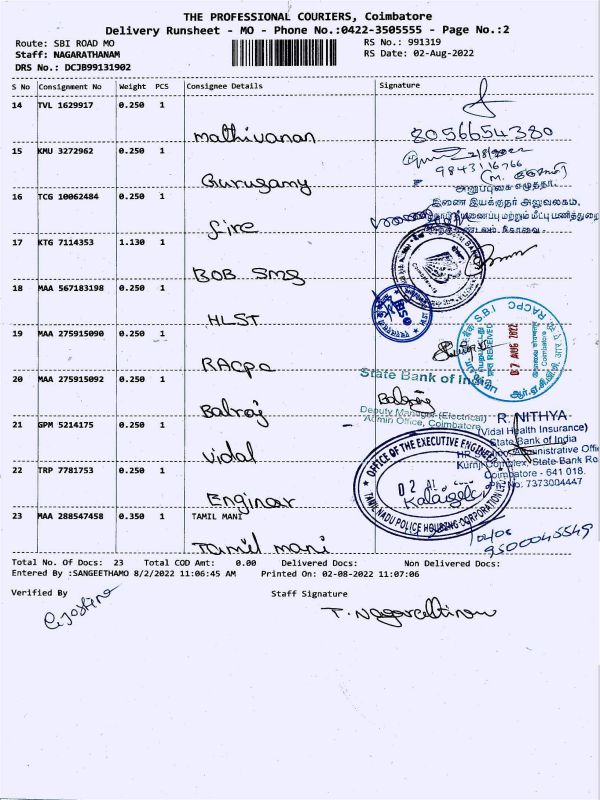 THE PROFESSIONAL COURIERS, Coimbatore
Delivery Runsheet - MO - Phone No.:0422-3505555 - Page No.:2
Route: SBI ROAD MO
RS No.: 991319
Staff: NAGARATHANAM
RS Date: 02-Aug-2022
DRS No.: DCJB99131902
S No Consignment No Weight PCS Consignee Details Signature
14 TVL 1629917 0.250 1
Mathivanan
8056654380
15 KMU 3272962 0.250 1
2/8/2022
9843116766
Gurusamy
அனுப்புகை எழுத்தர்.
16 TCG 10062484 0.250 1
இணை இயக்குநர் அலுவலகம்,
மற்றும் மீட்பு பணித்துறை
fire
17 KTG 7114353 1.130 1
BOB SMS
18 MAA 567183198 0.250 1
HLST
SBI RACPC
RECEIVED
02 AUG 2022
Coimbatore
19 MAA 275915090 0.250 1
RACPC
State Bank of India
20 MAA 275915092 0.250 1
Balraj
Balraj
Deputy Manager (Electrical)
Admin Office, Coimbatore
21 GPM 5214175 0.250 1
R. NITHYA
(Vidal Health Insurance)
State Bank of India
Vidal
Kurnji Complex, State Bank Ro
Coimbatore - 641 018.
Ph. No: 7373004447
OFFICE OF THE EXECUTIVE ENGINEER
TAMIL NADU POLICE HOUSING CORPORATION LTD
22 TRP 7781753 0.250 1
Enginar
23 MAA 288547458 0.350 1 TAMIL MANI
Tamil mani
9500045549
Total No. Of Docs: 23 Total COD Amt: 0.00 Delivered Docs: Non Delivered Docs:
Entered By :SANGEETHAMO 8/2/2022 11:06:45 AM Printed On: 02-08-2022 11:07:06
Verified By Staff Signature